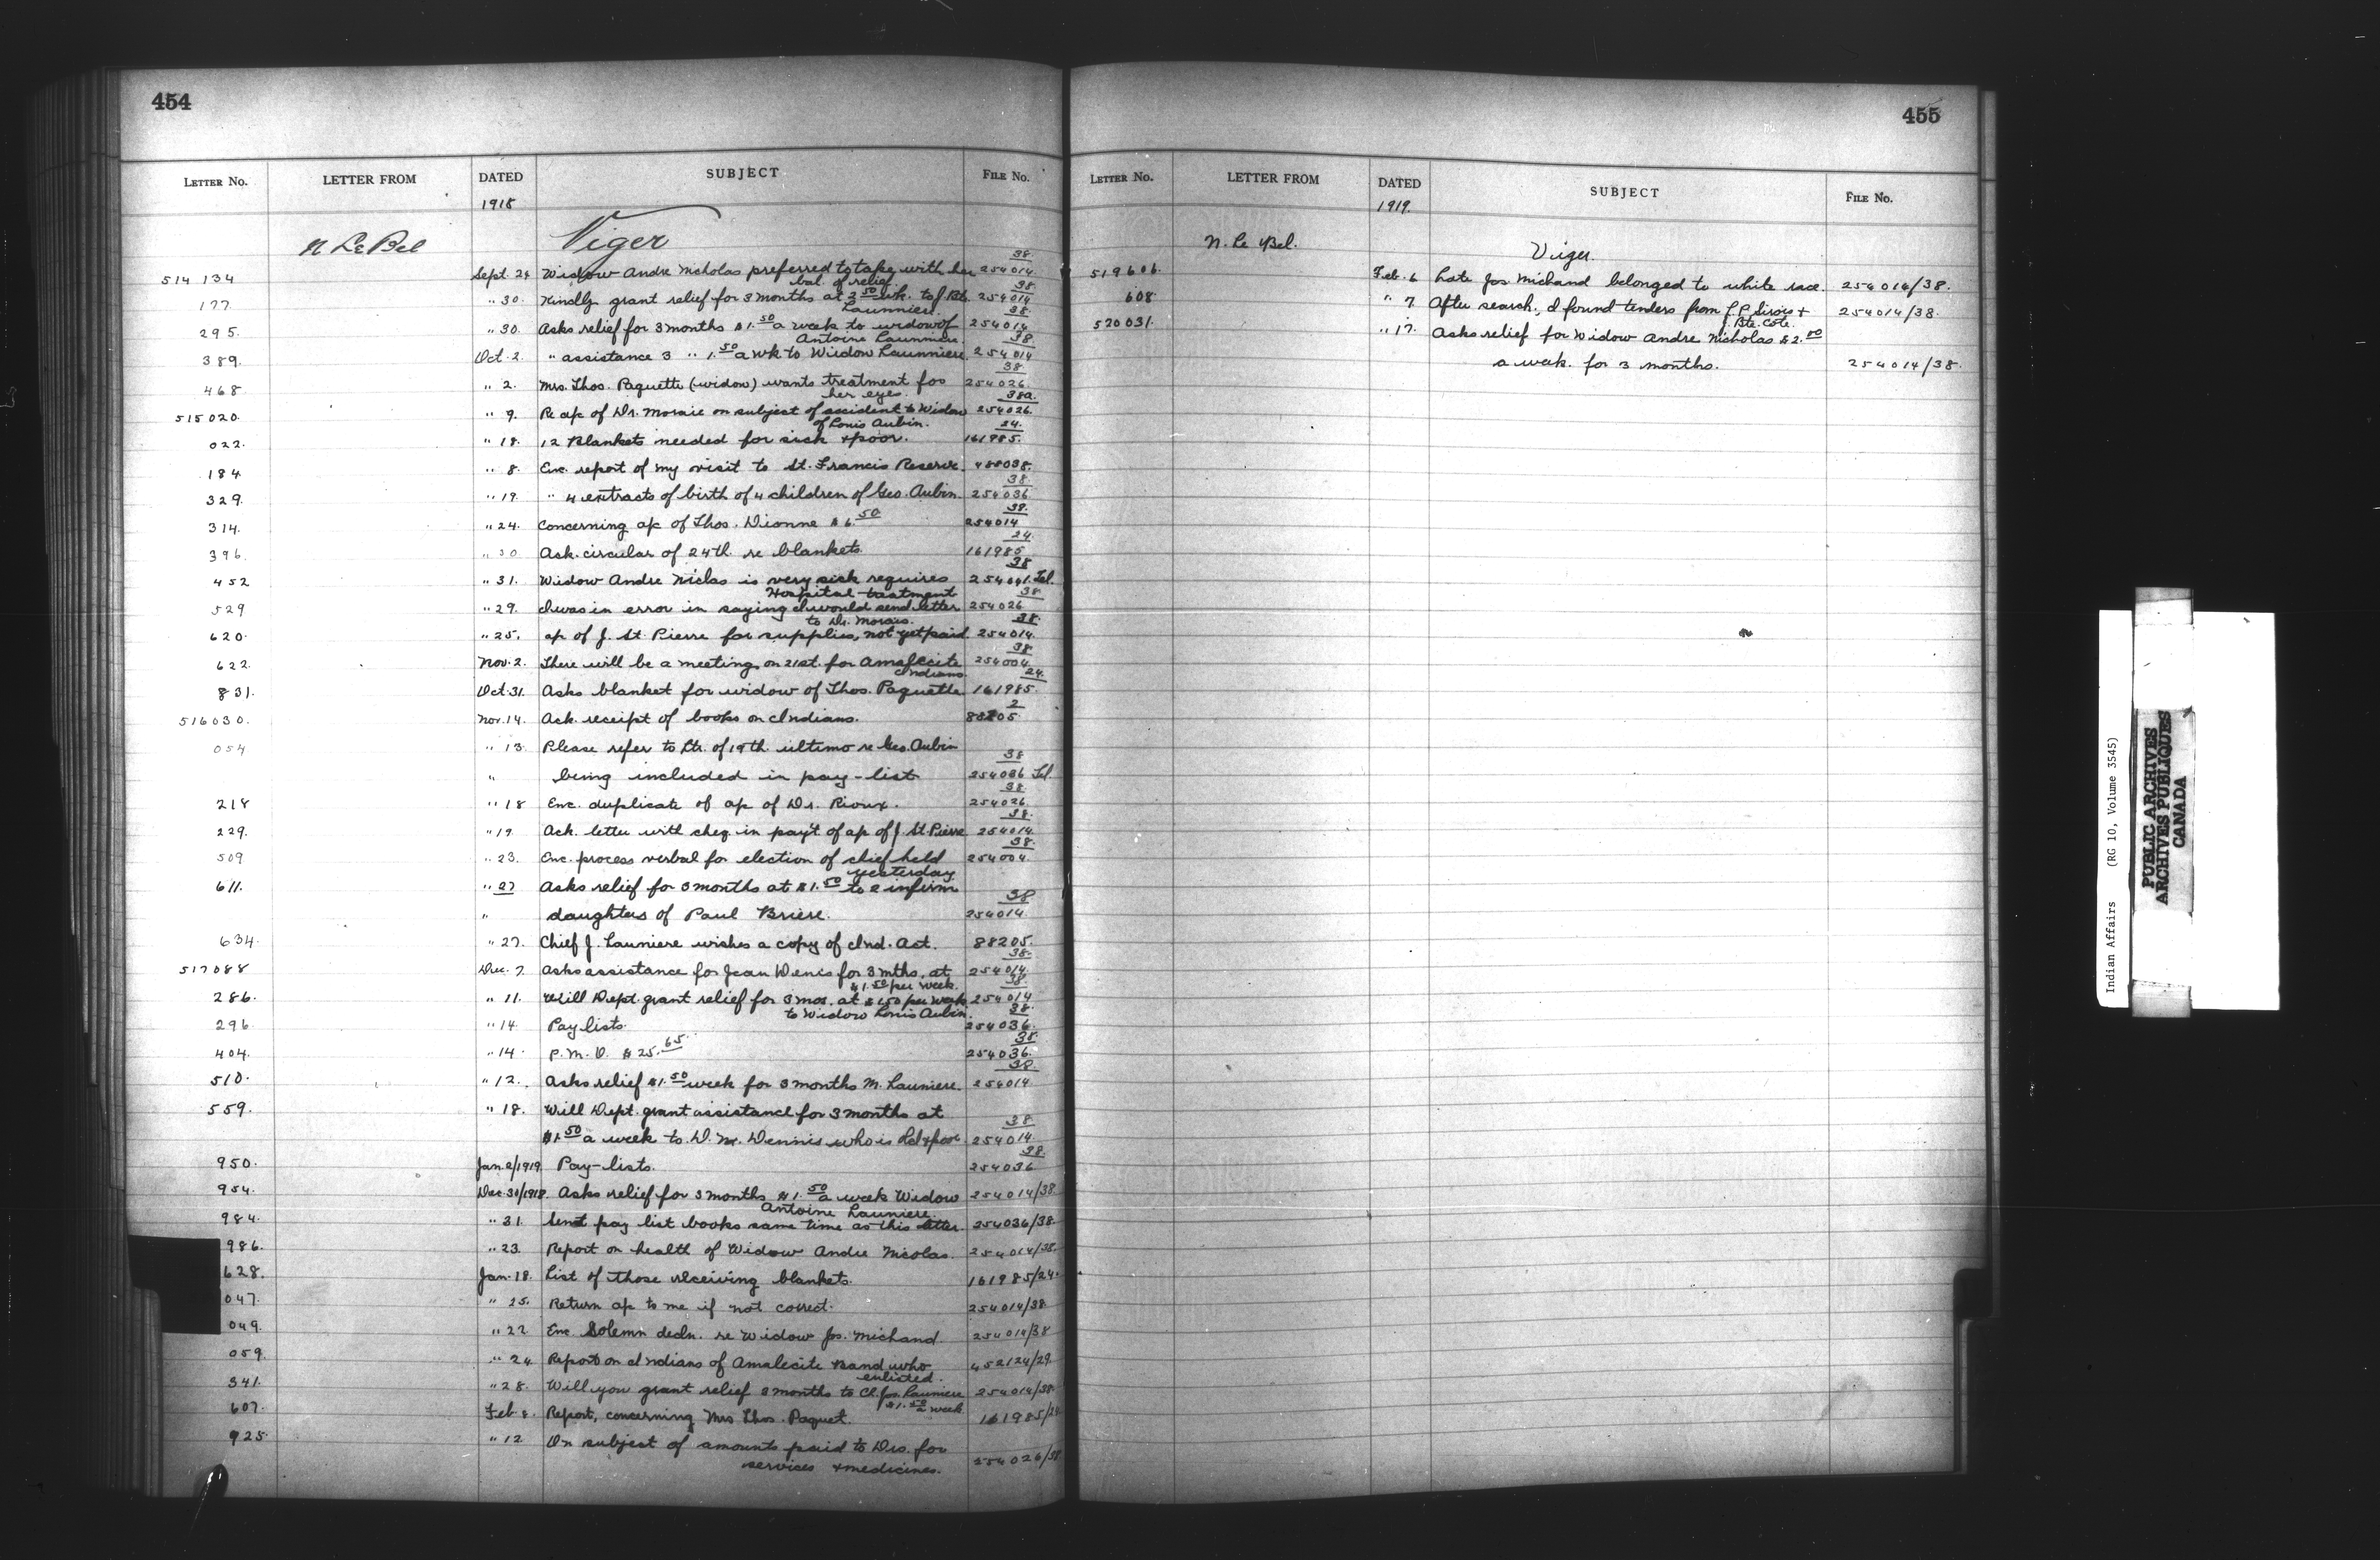 454
LETTER NO. LETTER FROM DATED SUBJECT FILE NO.
1918
N Le Bel Viger
514 134 Sept. 24 Widow Andre Nicholas preferred to take with her 254014/38
bal. of relief.
177 " 30. Kindly grant relief for 3 months at 2.50 wk. to J. Bte. 254014/38
Launiere.
295. " 30. Asks relief for 3 months $1.50 a week to widow of 254014/38
Antoine Launiere.
389. Oct. 2. " assistance 3 " 1.50 a wk to Widow Launniere 254014/38
468 " 2. Mrs. Thos. Paquette (widow) wants treatment for 254026/38
her eyes.
515020. " 9. Re a/c of Dr. on subject of accident to Widow 254026/38a
of Louis Aubin.
022. " 18. 12 Blankets needed for sick & poor. 161985/24
184 " 8. Enc. report of my visit to St. Francis Reserve. 488038.
329. " 19. " 4 extracts of birth of 4 children of Geo. Aubin. 254036/38
314. " 24. Concerning a/c of Thos. Dionne $6.50 254014/38
396. " 30 Ack. circular of 24th. re blankets. 161985/24
452 " 31. Widow Andre Niclas is very sick requires 254041/38 Tel.
Hospital treatment
529 " 29. I was in error in saying I would send letter 254026/38
to Dr. Morais.
620. " 25. a/c of J. St. Pierre for supplies, not yet paid. 254014/38
622. Nov. 2. There will be a meeting on 21st. for Amalecite 254004/38
Indians.
831. Oct. 31. Asks blanket for widow of Thos. Paquette 161985/24
516030. Nov. 14. Ack. receipt of books on Indians. 88205/2
054 " 13. Please refer to Ltr. of 19th ultimo re Geo. Aubin
" being included in pay-list 254036/38 Tel.
218 " 18 Enc. duplicate of a/c of Dr. Rioux. 254026/38
229. " 19. Ack. letter with cheq. in pay't of a/c of J. St. Pierre 254014/38
509 " 23. Enc. process verbal for election of chief held 254004/38
yesterday
611. " 27 Asks relief for 3 months at $1.50 to 2 infirm
" daughters of Paul Briere. 254014/38
634. " 27. Chief J. Launiere wishes a copy of Ind. Act. 88205.
517088 Dec. 7 Asks assistance for Jean Denis for 3 mths. at 254014/38
$1.50 per week.
286. " 11. Will Dept. grant relief for 3 mos. at $1.50 per week 254014/38
to Widow Louis Aubin.
296. " 14. Pay lists. 254036/38
404. " 14. P.M.O. $25.65 254036/38
510. " 12. Asks relief $1.50 week for 3 months M. Launiere. 254014/38
559. " 18. Will Dept. grant assistance for 3 months at
$1.50 a week to D. M. Dennis who is old & poor 254014/38
950. Jan. 2/1919 Pay-lists. 254036/38
954. Dec. 30/1918. Asks relief for 3 months $1.50 a week Widow 254014/38
Antoine Launiere.
984. " 31. Sent pay list books same time as this letter. 254036/38
986. " 23. Report on health of Widow Andre Nicolas. 254014/38.
628. Jan. 18. List of those receiving blankets. 161985/24.
047. " 25. Return a/c to me if not correct. 254014/38
049. " 22 Enc. Solemn decln. re Widow Jos. Michand. 254014/38
059. " 24. Report on Indians of Amalecite Band who 452124/29.
enlisted.
341. " 28. Will you grant relief 3 months to Cl. Jos. Launiere 254014/38
$1.50 a week
607. Feb. 8. Report, concerning Mrs Thos. Paquet. 161985/24
925 " 12 On subject of amounts paid to Drs. for
services & medicines. 254026/38
455
LETTER NO. LETTER FROM DATED SUBJECT FILE NO.
1919.
N. Le Bel. Viger.
519606. Feb. 6 Late Jos Michand belonged to white race. 254014/38.
608. " 7. After search, I found tenders from J.P. Sirois & 254014/38.
J. Bte. Cote.
520031. " 17. Asks relief for Widow Andre Nicholas $2.00
a week. for 3 months. 254014/38.
Indian Affairs (RG 10, Volume 3545)
PUBLIC ARCHIVES
ARCHIVES PUBLIQUES
CANADA